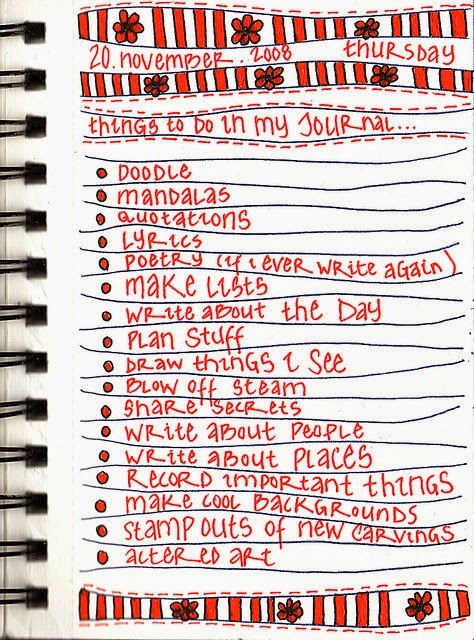 20. november. 2008 THURSDAY
things to do in my Journal...
DOODLE
mandalas
quotations
Lyrics
poetry (if i ever write again)
make lists
write about the Day
plan stuff
Draw things i see
Blow off steam
share secrets
write about people
write about places
Record important things
make cool backgrounds
stamp outs of new carvings
altered art